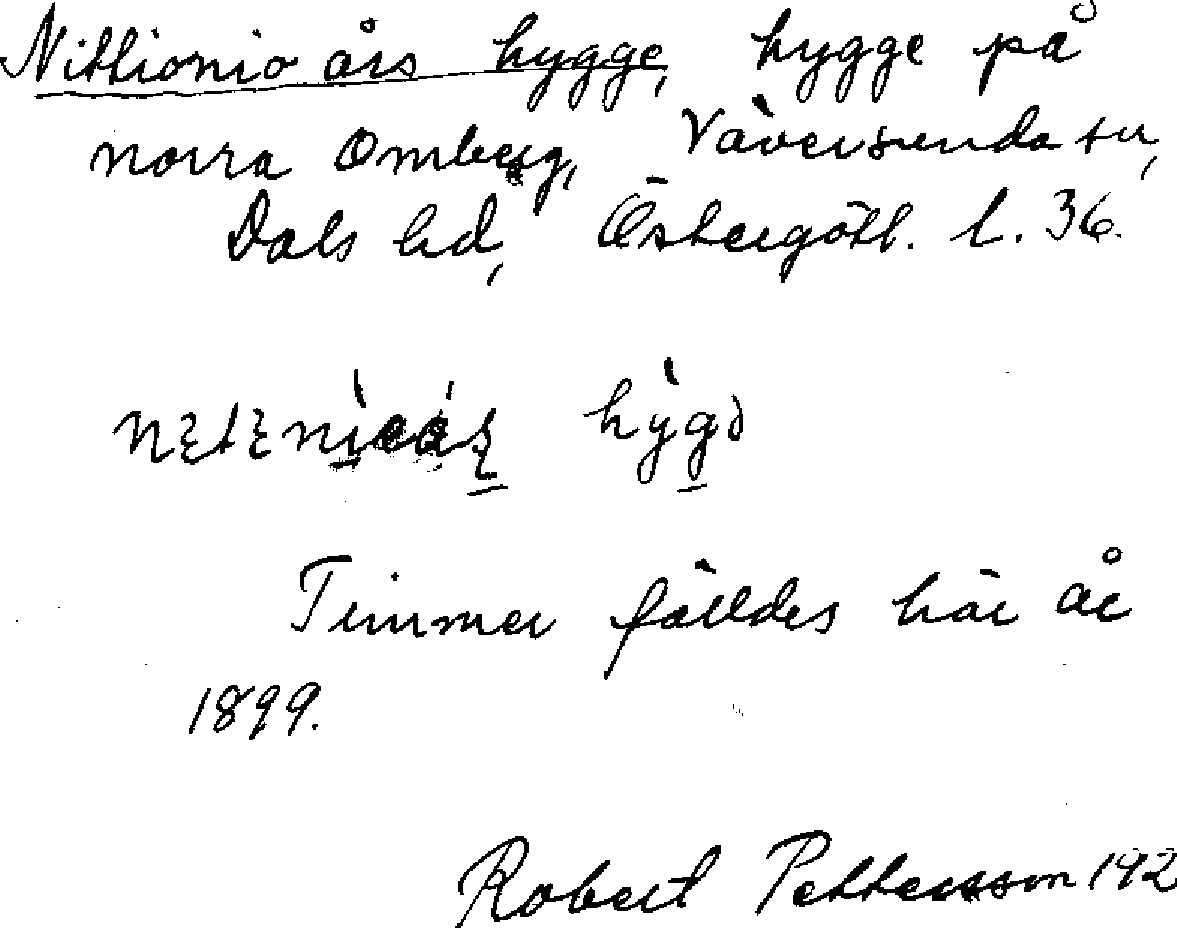 Nittionio års hygge, hygge på
norra Omberg, Väversunda sn,
Dals hd, Östergötl. l. 36.
hyg
Timmer fälldes här år
1899.
Robert Pettersson 192